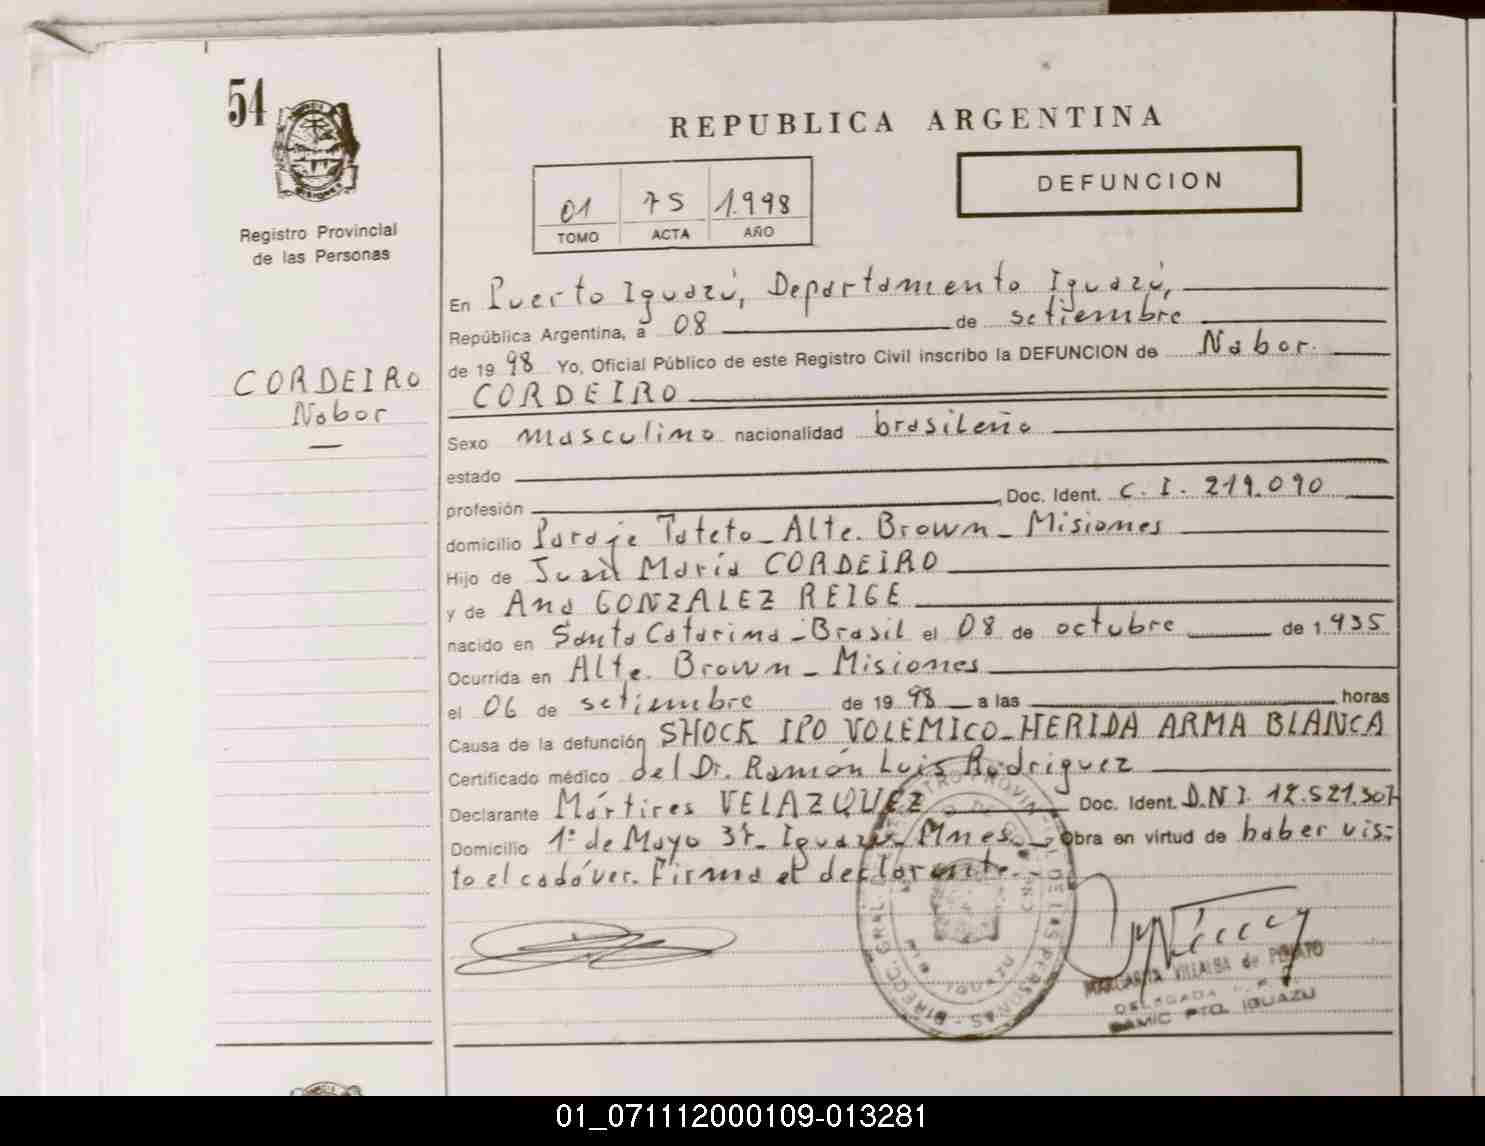 54
REPUBLICA ARGENTINA
DEFUNCION
01 75 1.998
TOMO ACTA AÑO
Registro Provincial
de las Personas
CORDEIRO
Nabor
En Puerto Iguazú, Departamento Iguazú,
República Argentina, a 08 de setiembre
de 19 98 Yo, Oficial Público de este Registro Civil inscribo la DEFUNCION de Nabor
CORDEIRO
Sexo masculino nacionalidad brasileña
estado
profesión Doc. Ident. C. I. 219.090
domicilio Paraje Tateto - Alte. Brown - Misiones
Hijo de Juan María CORDEIRO
y de Ana GONZALEZ REIGE
nacido en Santa Catarina - Brasil el 08 de octubre de 1.935
Ocurrida en Alte. Brown - Misiones
el 06 de setiembre de 19 98 a las horas
Causa de la defunción SHOCK IPO VOLEMICO - HERIDA ARMA BLANCA
Certificado médico del Dr. Ramón Luis Rodriguez
Declarante Mártires VELAZQUEZ Doc. Ident. D.N.I. 12.521.307
Domicilio 1º de Mayo 37 - Iguazú - Mnes. - Obra en virtud de haber vis-
to el cadáver. Firma el declarante.-
DIRECC. GRAL. REGISTRO PROVINCIAL DE LAS PERSONAS
IGUAZU
MARGARITA VILLALBA de
DELEGADA
SAMIC PTO. IGUAZU
01_071112000109-013281